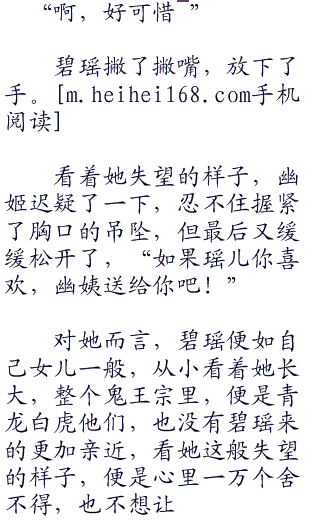 “啊，好可惜~”
碧瑶撇了撇嘴，放下了
手。[m.heihei168.com手机
阅读]
看着她失望的样子，幽
姬迟疑了一下，忍不住握紧
了胸口的吊坠，但最后又缓
缓松开了，“如果瑶儿你喜
欢，幽姨送给你吧！”
对她而言，碧瑶便如自
己女儿一般，从小看着她长
大，整个鬼王宗里，便是青
龙白虎他们，也没有碧瑶来
的更加亲近，看她这般失望
的样子，便是心里一万个舍
不得，也不想让